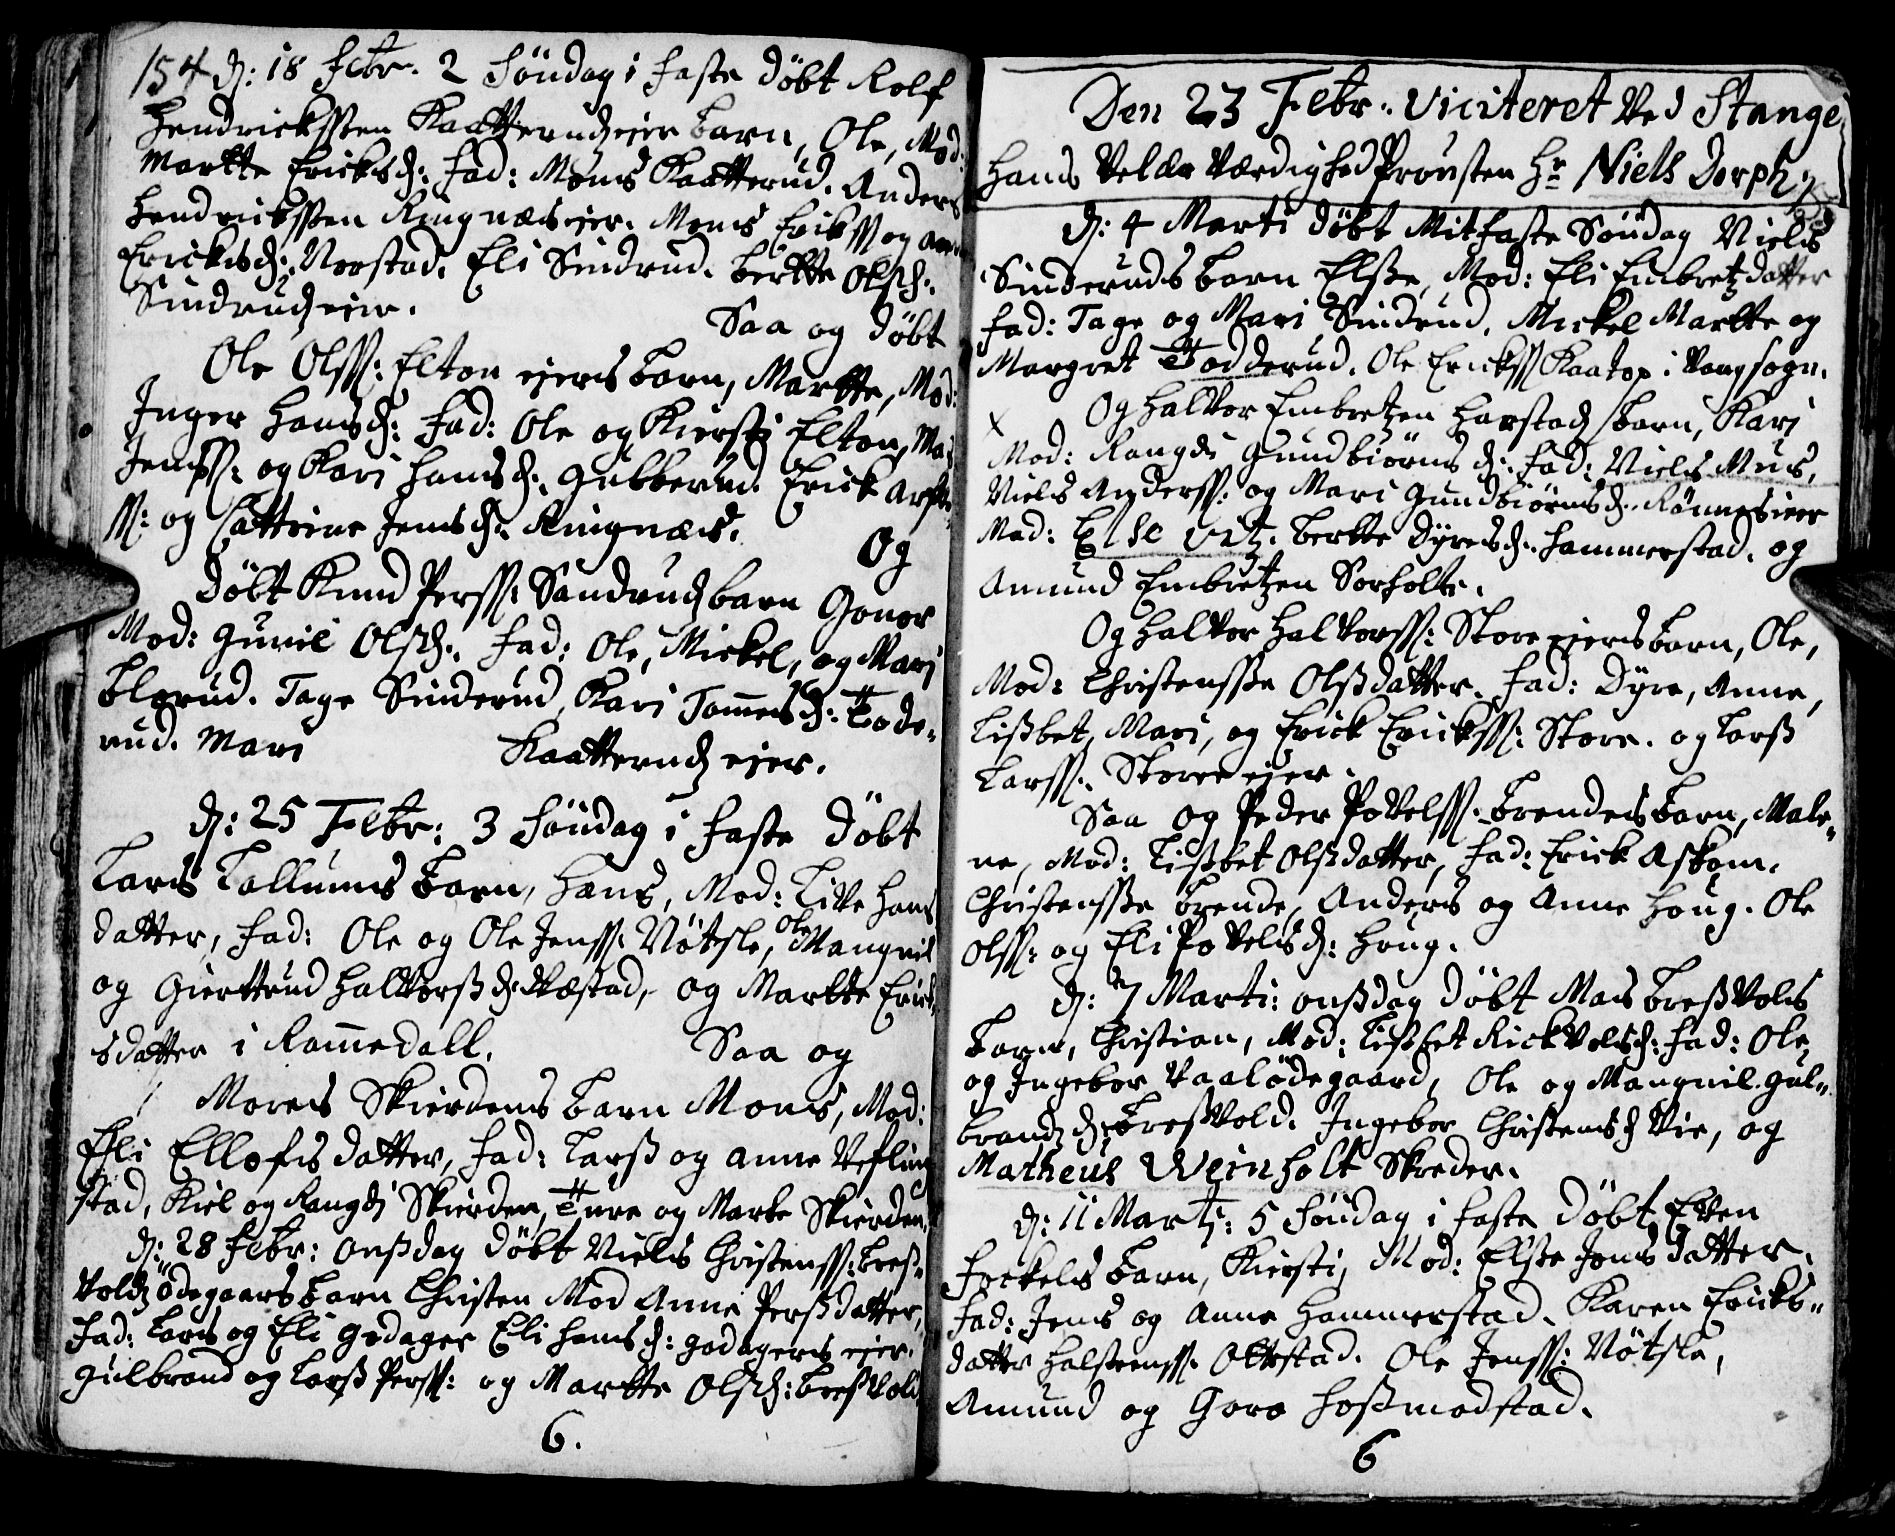 154 d: 18 Febr. 2 Söndag i faste döbt Rolf
Hendrickssten Kaatterudz eier barn, Ole, Mod:
Martte Ericksd: Fad: Mons Kaatterud. Anders
Hendrickssten Ringnæs eier. Mons Erickss og
Ericksd: Norstad. Eli Sindrud. Bertte Olsd:
Sindrudz eier.
Saa og döbt
Ole Olss: Elton eiers barn, Martte, Mod:
Inger Hansd: Fad: Ole og Kiersti Elton,
Jenss: og Kari Hansd: Gubberud. Erick
ss: og Cattrine Jensd: Ringnæs.
Og
döbt Knud Perss: Sandrudz barn Gonor
Mod: Gunil Olsd: Fad: Ole, Mickel, og Mari
Blorud. Tage Sinderud, Kari Tommesd: Tode-
rud. Mari Kaatterudz eier.
d: 25 Febr: 3 Söndag i faste döbt
Lars Tallums barn, Hans, Mod: Live Hans
datter, Fad: Ole og Ole Jenss: Nötsle, Ole Mangnil
og Giertrud Halvorssd: Væstad, og Martte Erick
sdatter i Rammedall.
Saa og
Morens Skierdens barn Mons, Mod:
Eli Ellofsdatter, Fad: Larss og Anne Uflin
stad, Kiel og Rangdi Skierden, Ture og Marte Skierden.
d: 28 Febr: Onssdag döbt Niels Christenss: Bress-
voldz ödegaars barn Christen Mod Anne Perssdatter,
Fad: Lars og Eli Godager Eli Hansd: Godagers eier.
Gulbrand og Larss Perss: og Martte Olsd: Bressvold
6.
Den 23 Febr. Viciteret Ved Stange
Hans Velær Værdighed Provsten Hr Niels Dorph
d: 4 Marti döbt Mitfaste Söndag Niels
Sinderuds barn Elsse, Mod: Eli Embretzdatter
Fad: Tage og Mari Sindrud. Mickel Martte og
Margret Todderud. Ole Erickss Kaatop i Vang sogn.
x Og Halvor Embretzen Harstads barn, Kari
Mod: Rangdi Gundbiörnsd: Fad: Niels Mus,
Niels Anderss: og Mari Gundbiörnsd: Rönnes eier
Mad: Else Vitz. Bertte Dyresd: Hammerstad. og
Amund Embretzen Sorholte.
Og Halvor Halvorss: Store eiers barn, Ole,
Mod: Christensse Olssdatter. Fad: Dyre, Anne,
Lissbet, Mari, og Erick Erickss: Store. og Larss
Larss: Store eier.
Saa og Peder Povelss: Brendens barn, Male-
ne, Mod: Lissbet Olssdatter, Fad: Erick Askom.
Christensse Brende, Anders og Anne Houg. Ole
Olss: og Eli Povelsd: Houg.
d: 7 Marti: Onssdag döbt Mas Bressvols
barn, Christian, Mod: Lissbet Rickvolsd: Fad: Ole
og Ingebor Vaalödegaard, Ole og Mangnil Gul-
brandz d: Bressvold. Ingebor Christensd Vie, og
Matheus Weinholt Skreder.
d: 11 Marti: 5 Söndag i faste döbt Even
Fockels barn, Kiersti, Mod: Elsse Jonsdatter.
Fad: Jens og Anne Hammerstad. Karen Ericks-
datter Halsteenss: Ottestad. Ole Jenss: Nötsle,
Amund og Goro Hossmodstad.
6